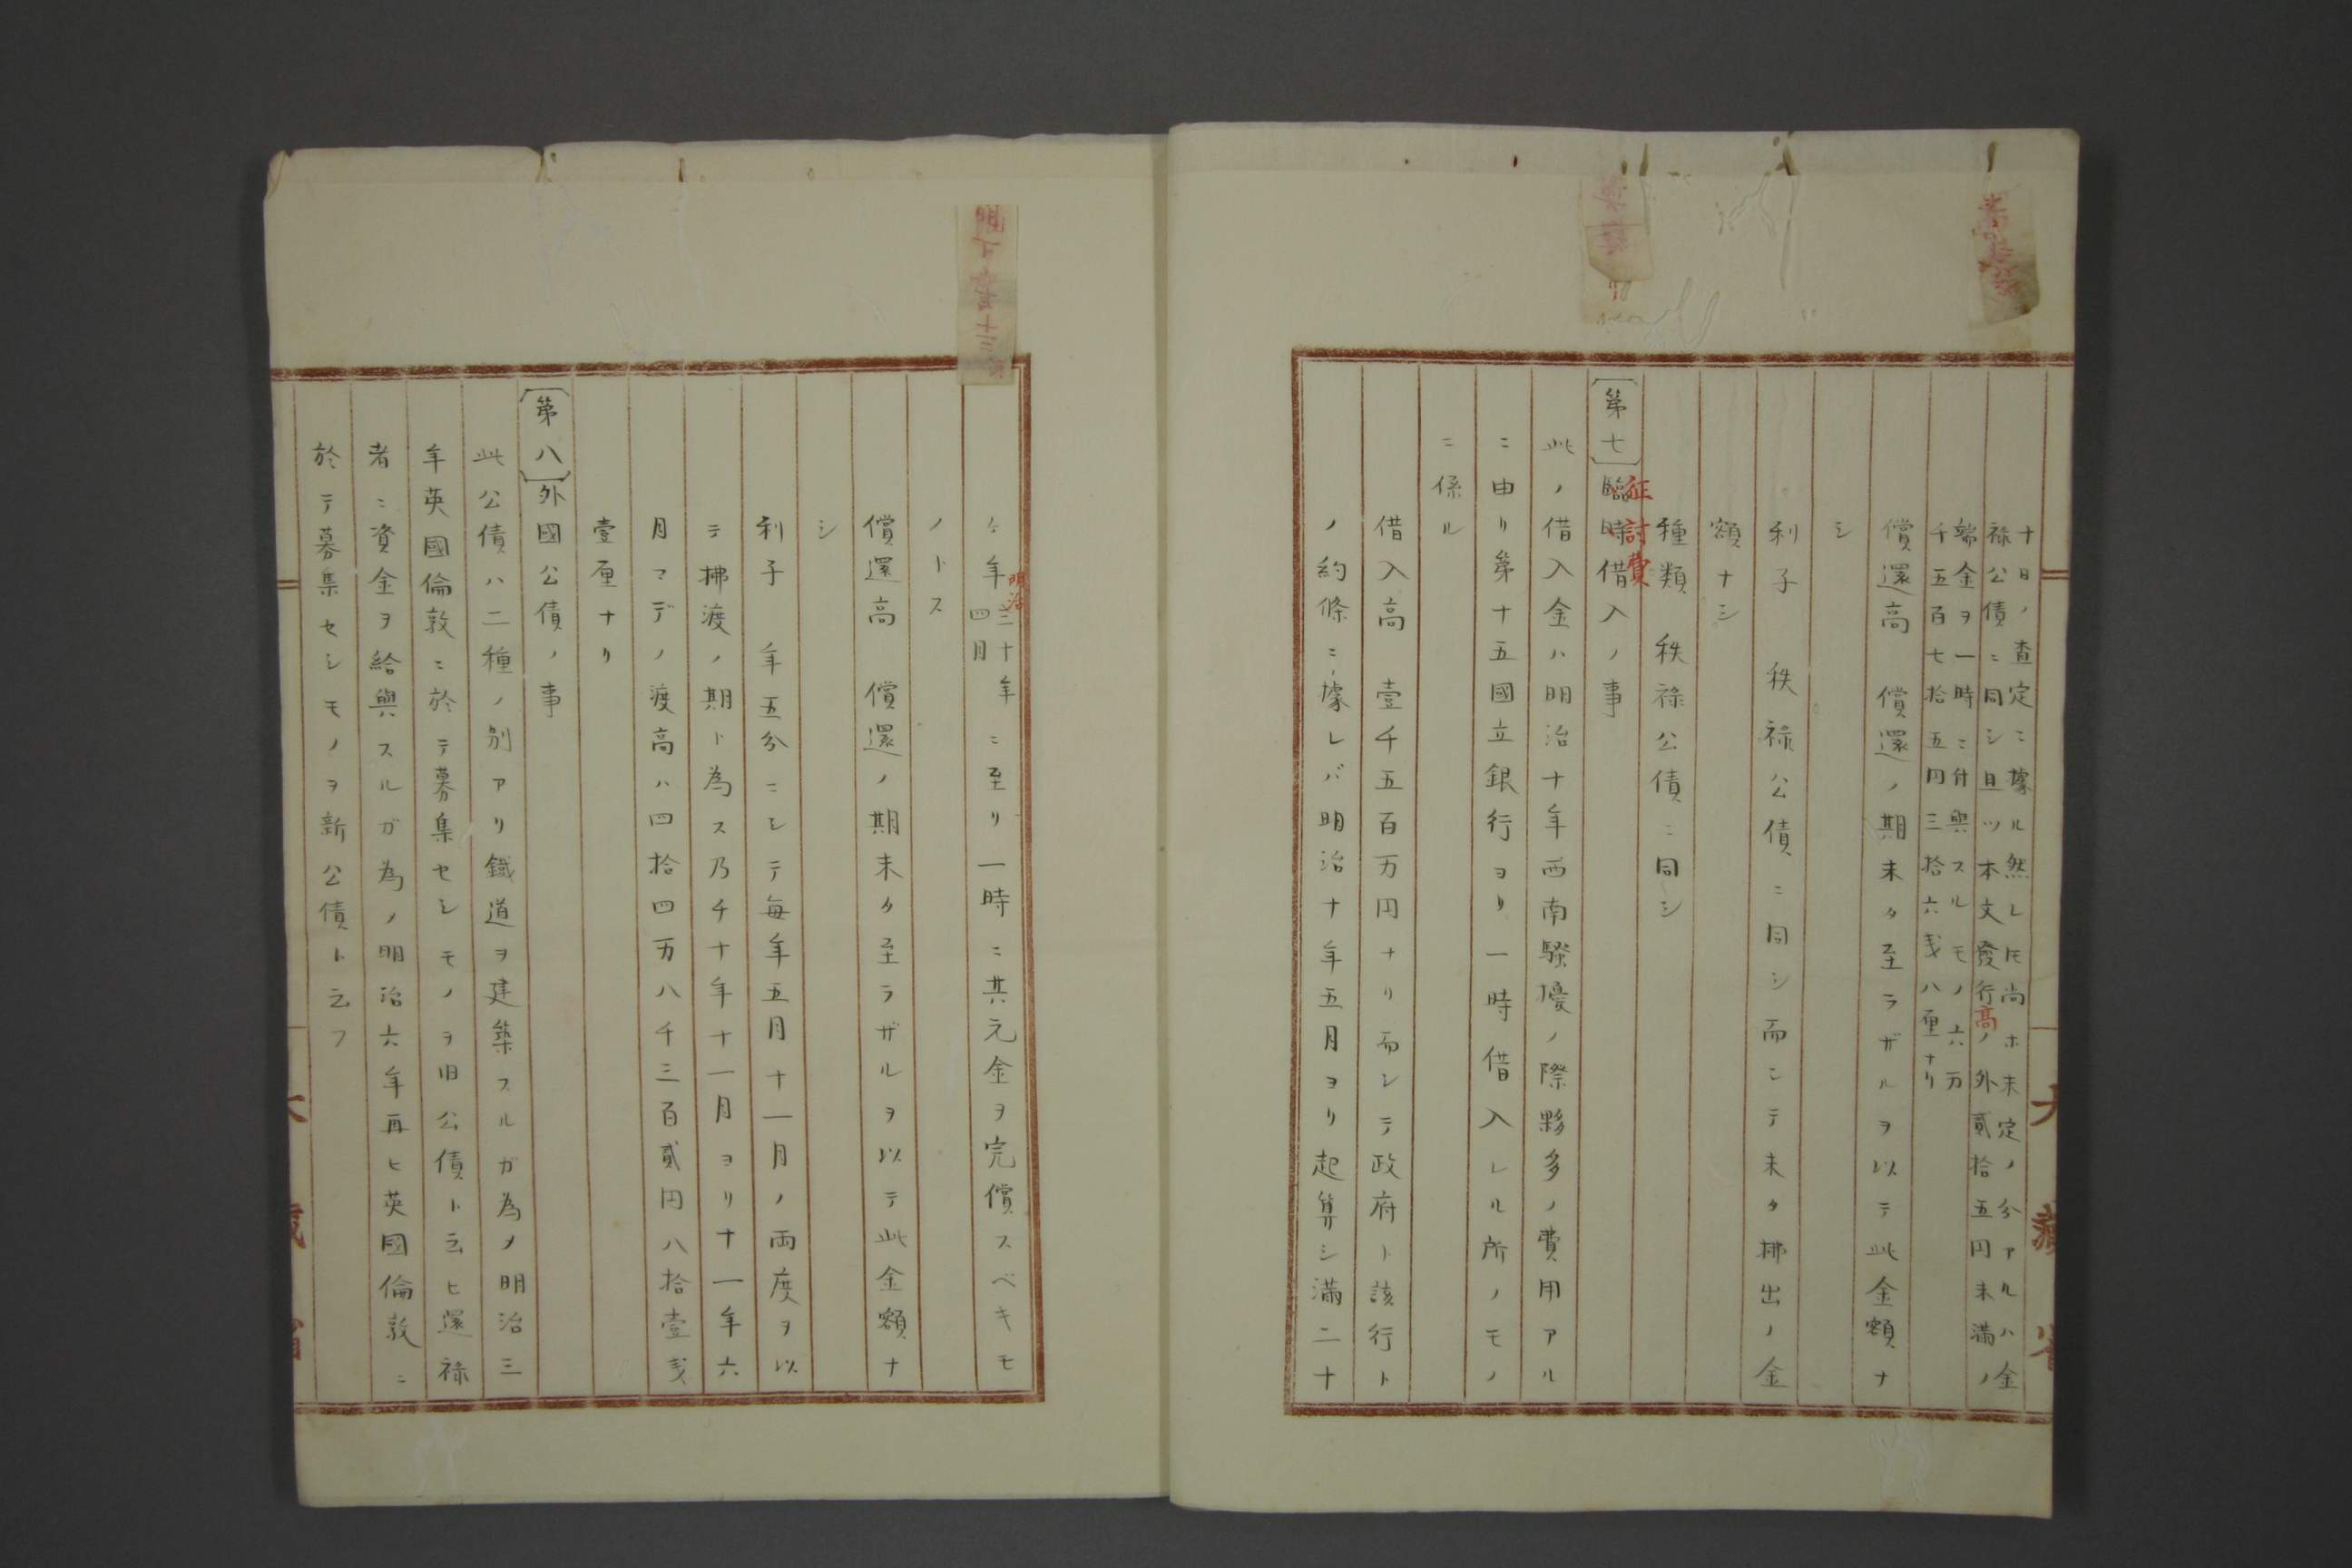 十日ノ査定ニ據ル然レ𪜈尚ホ未定ノ分アルハ金
禄公債ニ同シ且ツ本文發行高ノ外貳拾五円未満ノ
端金ヲ一時ニ付與スルモノ六万
千五百七拾五円三拾六戋八厘ナリ
償還高 償還ノ期未タ至ラザルヲ以テ此金額ナ
シ
利子 秩禄公債ニ同シ而シテ未タ拂出ノ金
額ナシ
種類 秩祿公債ニ同シ
征討費
第七 臨時借入ノ事
此ノ借入金ハ明治十年西南騒擾ノ際夥多ノ費用アル
ニ由リ第十五國立銀行ヨリ一時借入レル所ノモノ
ニ係ル
借入高 壹千五百万円ナリ而シテ政府ト該行ト
ノ約條ニ據レバ明治十年五月ヨリ起算シ満二十
大藏省
ケ年
明治三十年
四月
ニ至リ一時ニ其元金ヲ完償スベキモ
ノトス
償還高 償還ノ期未タ至ラザルヲ以テ此金額ナ
シ
利子 年五分ニシテ毎年五月十一月ノ両度ヲ以
テ拂渡ノ期ト為ス乃チ十年十一月ヨリ十一年六
月マデノ渡高ハ四拾四万八千三百貳円八拾壹戋
壹厘ナリ
第八 外國公債ノ事
此公債ハ二種ノ別アリ鐵道ヲ建築スルガ為メ明治三
年英國倫敦ニ於テ募集セシモノヲ旧公債ト云ヒ還禄
者ニ資金ヲ給與スルガ為ノ明治六年再ヒ英國倫敦ニ
於テ募集セシモノヲ新公債ト云フ